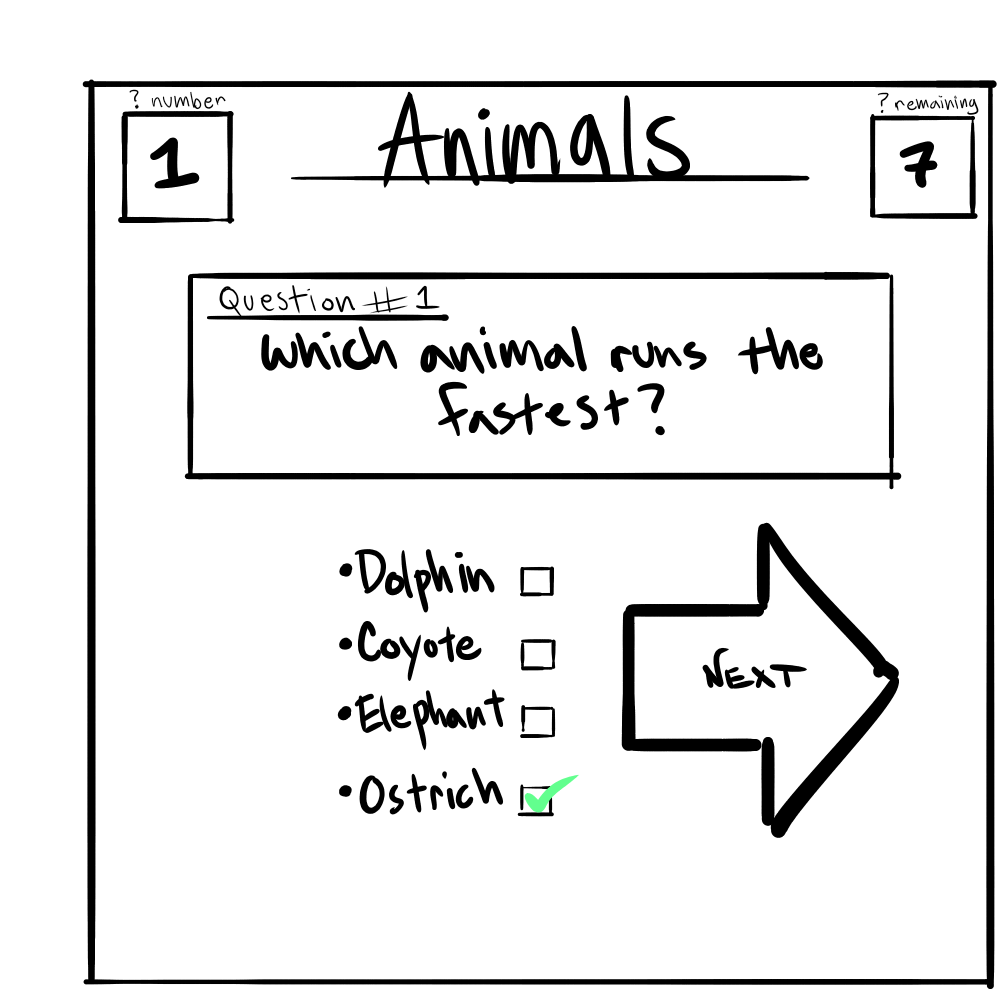 ? number
Animals
? remaining
1
7
Question #1
Which animal runs the
fastest?
•Dolphin
•Coyote
•Elephant
•Ostrich
NEXT